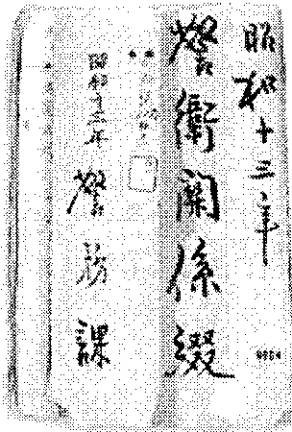 昭和十三年
警衛関係綴
昭和十三年
警務課